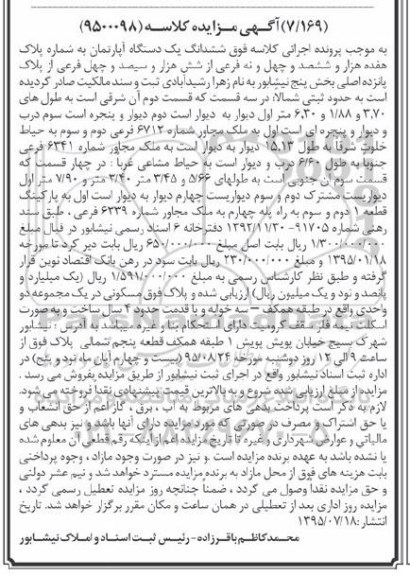 (۷/۱۶۹) آگهی مزایده کلاسه (۹۵۰۰۰۹۸)
به موجب پرونده اجرائی کلاسه فوق ششدانگ یک دستگاه آپارتمان به شماره پلاک
هفده هزار و ششصد و چهل و نه فرعی از شش هزار و سیصد و چهل فرعی از پلاک
پانزده اصلی بخش پنج نیشابور به نام زهرا رشیدآبادی ثبت و سند مالکیت صادر گردیده
است به حدود ثبتی شمالا: در سه قسمت که قسمت دوم آن شرقی است به طول های
۳.۷۰ و ۱/۸۸ و ۶.۳۰ متر اول دیوار به دیوار است دوم دیوار و پنجره است سوم درب
و دیوار و پنجره ای است اول به ملک مجاور شماره ۶۷۱۲ فرعی دوم و سوم به حیاط
خلوت شرقا: به طول ۱۵.۱۳ دیوار به دیوار است به ملک مجاور شماره ۶۳۴۱ فرعی
جنوبا: به طول ۶/۶۰ درب و دیوار است به حیاط مشاعی غربا: در چهار قسمت که
قسمت سوم آن جنوبی است به طولهای ۵/۶۶ و ۳/۴۵ متر ۲/۴۰ متر و ۷/۹۰ متر اول
دیواریست مشترک دوم و سوم دیواریست چهارم دیوار به دیوار است اول به پارکینگ
قطعه دوم و سوم به راه پله چهارم به ملک مجاور شماره ۶۳۳۹ فرعی، طبق سند
رهنی شماره ۹۱۷۰۵-۱۳۹۲/۱/۲۰ دفترخانه ۶ اسناد رسمی نیشابور در قبال مبلغ
۱/۳۰۰/۰۰۰/۰۰۰ ریال بابت اصل مبلغ ۶۵۰/۰۰۰/۰۰۰ ریال بابت دیر کرد تا مورخه
۱۳۹۵/۰۱/۱۸ و مبلغ ۲۳۰/۰۰۰/۰۰۰ ریال بابت سود در رهن بانک اقتصاد نوین قرار
گرفته و طبق نظر کارشناس رسمی به مبلغ ۱/۵۹۱/۰۰۰/۰۰۰ ریال (یک میلیارد و
پانصد و نود و یک میلیون ریال) ارزیابی شده و پلاک فوق مسکونی در یک مجموعه دو
واحدی واقع در طبقه همکف – سه خوابه و با قدمت حدود ۴ سال ساخت و به صورت
اسکلت نیمه فلز سقف کرومیت دارای استحکام بنا و غیره میباشد به آدرس: نیشابور
شهرک بسیج خیابان پویش پویش ۱ طبقه همکف قطعه پنجم شمالی پلاک فوق از
ساعت ۹ الی ۱۲ روز دوشنبه مورخه ۹۵/۰۸/۲۴ (بیست و چهارم آبان ماه نود و پنج) در
اداره ثبت اسناد نیشابور واقع در اجرای ثبت نیشابور از طریق مزایده بفروش می رسد.
مزایده از مبلغ ارزیابی شده شروع و به بالاترین قیمت پیشنهادی نقدا فروخته می شود.
لازم به ذکر است پرداخت بدهی های مربوط به آب، برق، گاز اعم از حق انشعاب و
یا حق اشتراک و مصرف در صورتی که مورد مزایده دارای آنها باشد و نیز بدهی های
مالیاتی و عوارض شهرداری و غیره تا تاریخ مزایده اعم از اینکه رقم قطعی آن معلوم شده
یا نشده باشد به عهده برنده مزایده است. و نیز در صورت وجود مازاد، وجوه پرداختی
بابت هزینه های فوق از محل مازاد به برنده مزایده مسترد خواهد شد و نیم عشر دولتی
و حق مزایده نقدا وصول می گردد، ضمنا چنانچه روز مزایده تعطیل رسمی گردد،
مزایده روز اداری بعد از تعطیلی در همان ساعت و مکان مقرر برگزار خواهد شد. تاریخ
انتشار: ۱۳۹۵/۰۷/۱۸
محمدکاظم باقرزاده – رئیس ثبت اسناد و املاک نیشابور